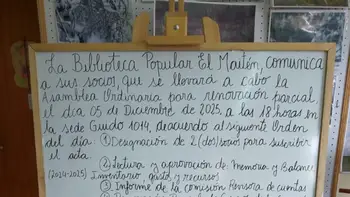 La Biblioteca Popular El Maitén, comunica
a sus socios, que se llevará a cabo la
Asamblea Ordinaria para renovación parcial,
el día 05 de Diciembre de 2025, a las 18 horas en
la sede Guido 1014, deacuerdo al siguiente Orden
del día: ① Designación de 2 (dos) socios para suscribir
el acta.
② Lectura y aprovación de Memoria y Balance
(2024-2025) Inventario, gasto, y recursos
③ Informe de la comisión Revisora de cuentas